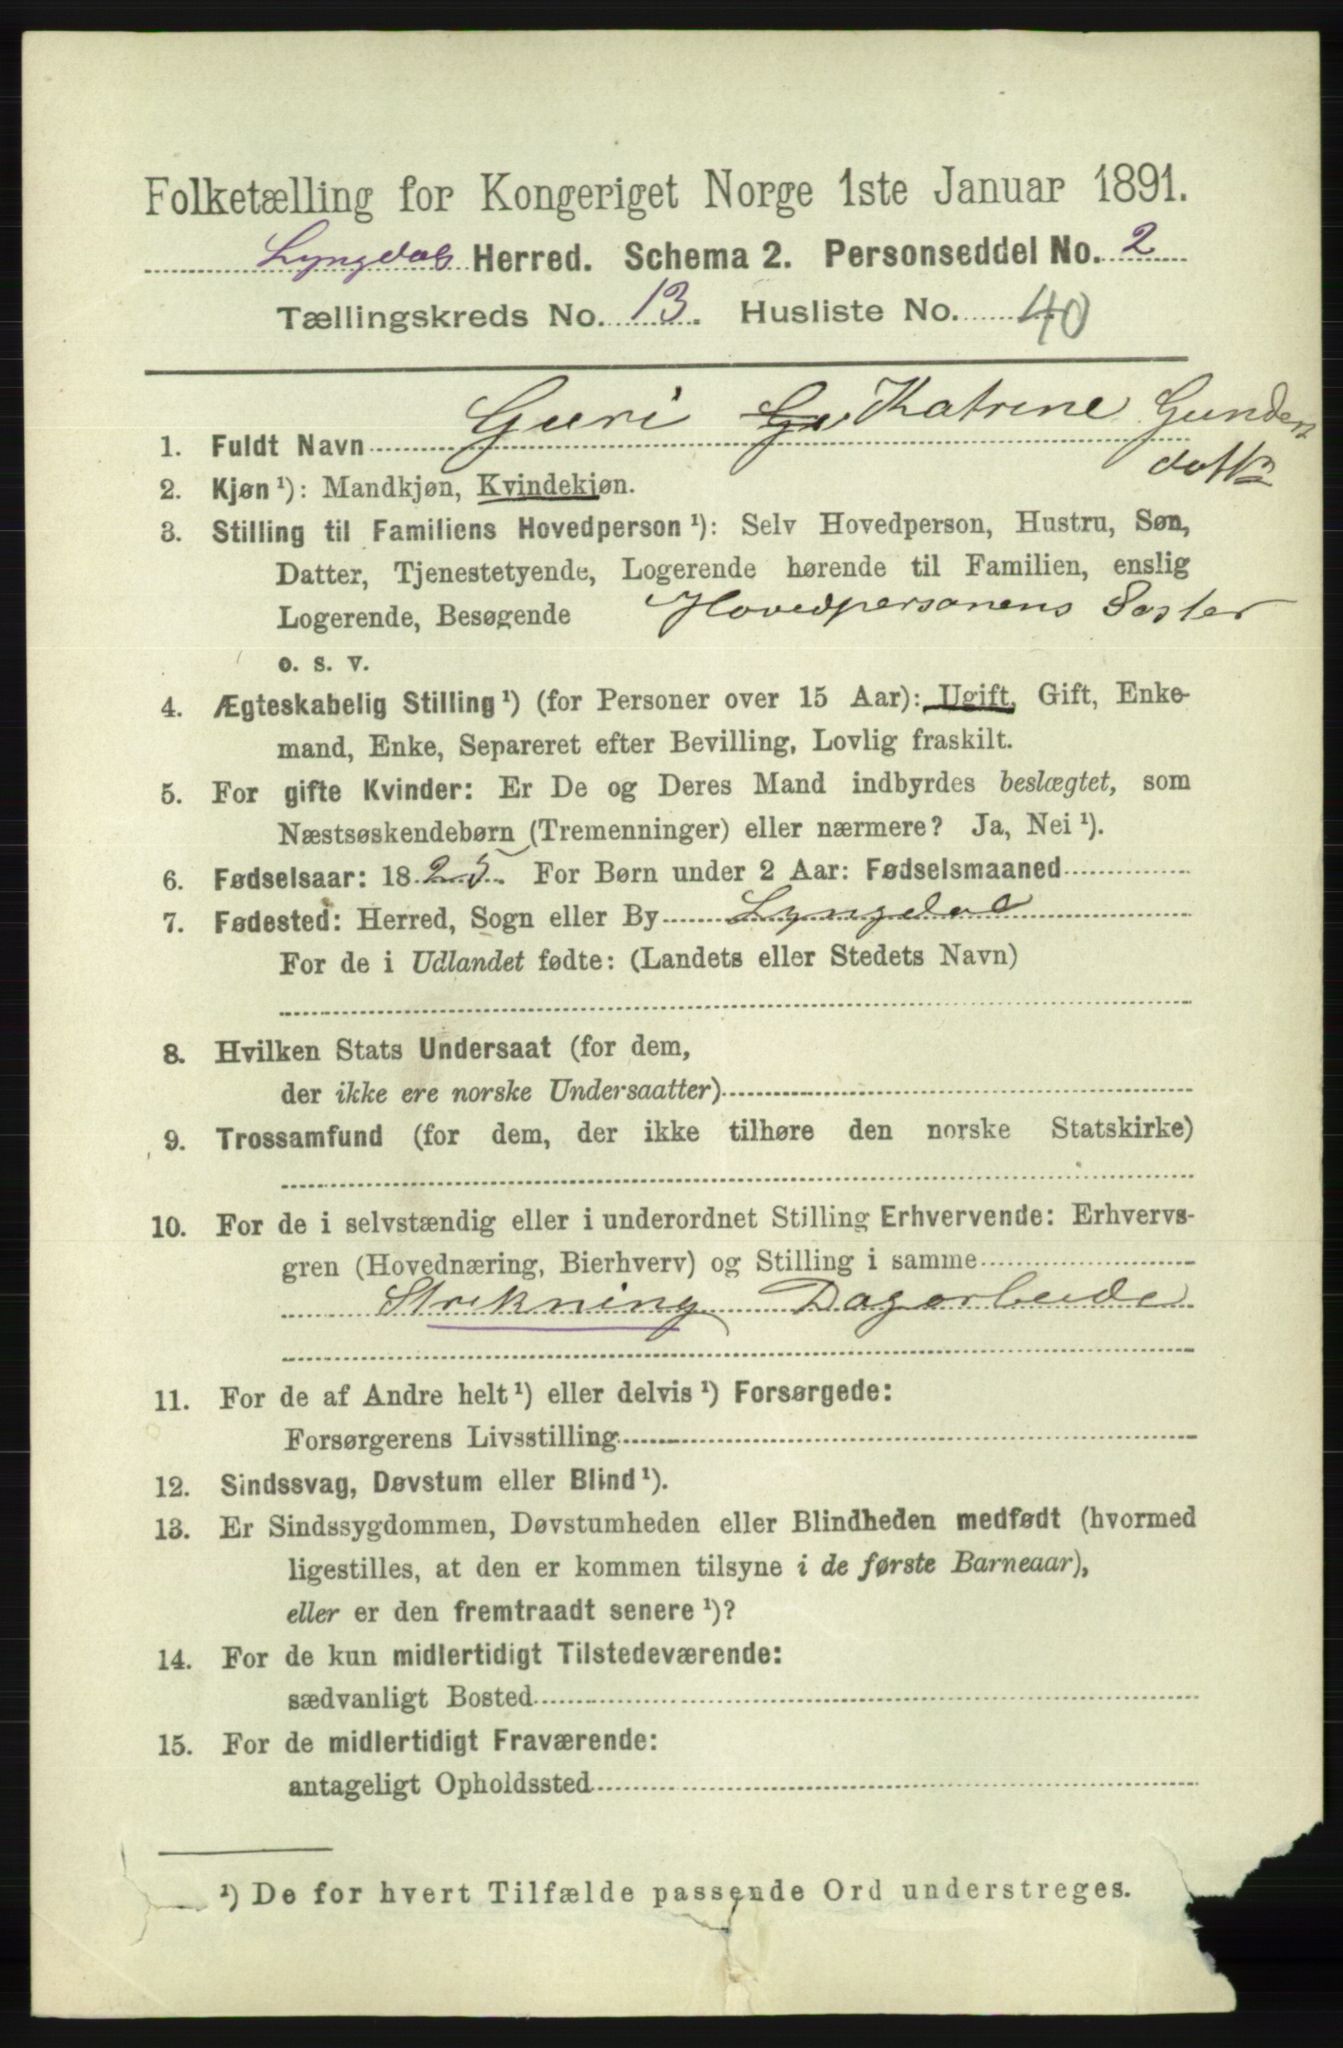 Folketælling for Kongeriget Norge 1ste Januar 1891.
Lyngdal Herred. Schema 2. Personseddel No. 2
Tællingskreds No. 13. Husliste No. 40
1. Fuldt Navn Guri Katrine Gunders
datter
2. Kjøn ¹): Mandkjøn, Kvindekjøn.
3. Stilling til Familiens Hovedperson ¹): Selv Hovedperson, Hustru, Søn,
Datter, Tjenestetyende, Logerende hørende til Familien, enslig
Logerende, Besøgende Hovedpersonens Søster
o. s. v.
4. Ægteskabelig Stilling ¹) (for Personer over 15 Aar): Ugift, Gift, Enke-
mand, Enke, Separeret efter Bevilling, Lovlig fraskilt.
5. For gifte Kvinder: Er De og Deres Mand indbyrdes beslægtet, som
Næstsøskendebørn (Tremenninger) eller nærmere? Ja, Nei ¹).
6. Fødselsaar: 1825. For Børn under 2 Aar: Fødselsmaaned
7. Fødested: Herred, Sogn eller By Lyngdal
For de i Udlandet fødte: (Landets eller Stedets Navn)
8. Hvilken Stats Undersaat (for dem,
der ikke ere norske Undersaatter)
9. Trossamfund (for dem, der ikke tilhøre den norske Statskirke)
10. For de i selvstændig eller i underordnet Stilling Erhvervende: Erhvervs-
gren (Hovednæring, Bierhverv) og Stilling i samme
Strikning Dagarbeide
11. For de af Andre helt ¹) eller delvis ¹) Forsørgede:
Forsørgerens Livsstilling
12. Sindssvag, Døvstum eller Blind ¹).
13. Er Sindssygdommen, Døvstumheden eller Blindheden medfødt (hvormed
ligestilles, at den er kommen tilsyne i de første Barneaar),
eller er den fremtraadt senere ¹)?
14. For de kun midlertidigt Tilstedeværende:
sædvanligt Bosted
15. For de midlertidigt Fraværende:
antageligt Opholdssted
¹) De for hvert Tilfælde passende Ord understreges.